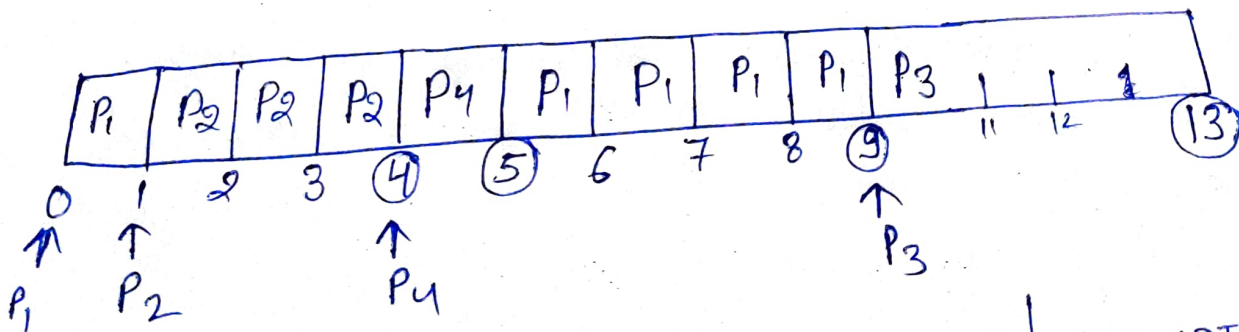 P₁ P₂ P₂ P₂ P₄ P₁ P₁ P₁ P₁ P₃
0 1 2 3 4 5 6 7 8 9 11 12 13
P₁ P₂ P₄ P₃